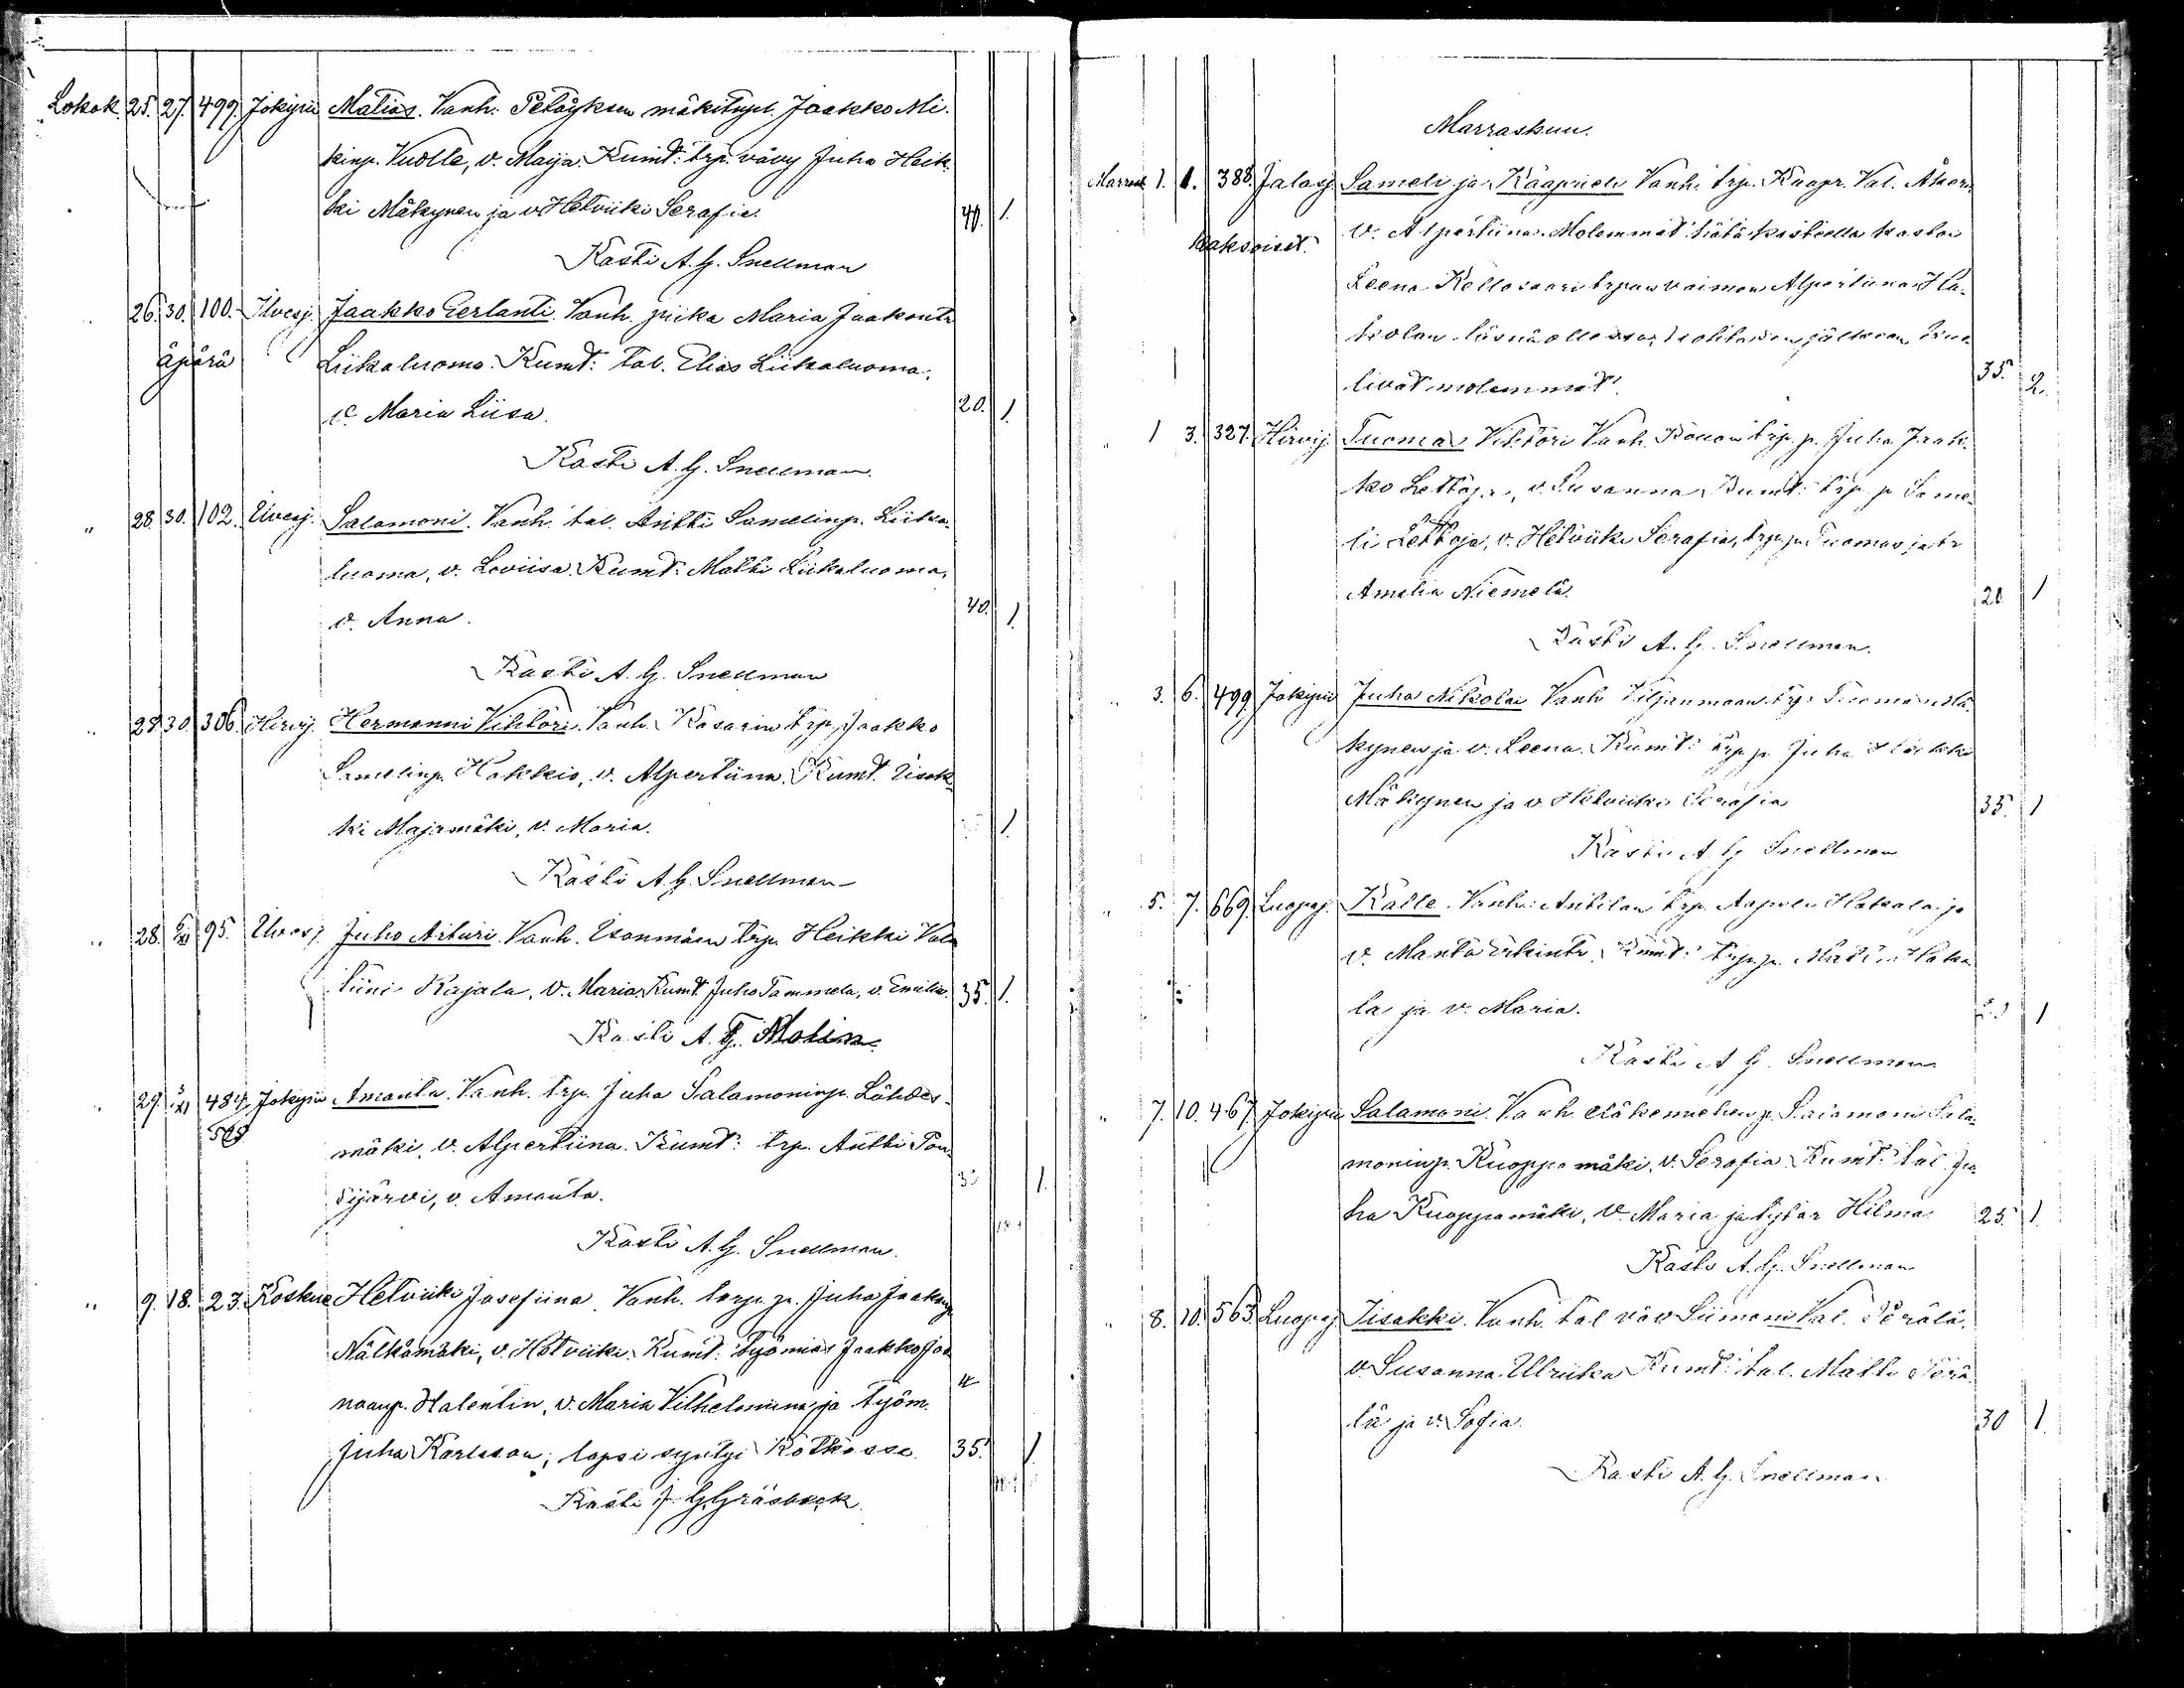 Lokak. 25. 27. 499. Jokipii Matias. Vanh. Petäyksen mäkitupl. Jaakko Mi-
kinp. Vuolle, v. Maija. Kumt: trp. vävy Juha Heik-
ki Mäkynen ja v. Hetviiki Serafia. 40. 1.
Kasti A. G. Snellman
26. 30. 100. Ilvesj. Jaakko Eerlanti. Vanh. piika Maria Jaakontr
äpärä Liikaluoma. Kumt: tal. Elias Liikaluoma,
v. Maria Liisa. 20. 1.
Kasti A. G. Snellman.
" 28. 30. 102. Ilvesj. Salamoni. Vanh. tal. Antti Samelinp. Liika-
luoma, v. Loviisa. Kumt: Matti Liikaluoma,
v. Anna. 40. 1.
Kasti A. G. Snellman
" 28. 30. 306. Hirvij. Hermanni Vihtori. Vanh. Kasarin trp. Jaakko
Samelinp. Hakkio, v. Alpertiina. Kumt. Iisak-
ki Majamäki, v. Maria. 1.
Kasti A. G. Snellman
" 28. 95. Ilvesj. Juho Arturi. Vanh. Isonmäen trp. Heikki Vala
tiini Rajala, v. Maria. Kumt. Juho Tammela, v. Emilia. 35. 1.
Kasti A. G. Molin.
29. 484. Jokipii Amanta. Vanh. trp. Juha Salamoninp. Lähdes-
mäki, v. Alpertiina. Kumt: trp. Antti Pon-
sijärvi, v. Amanta. 1.
Kasti A. G. Snellman.
" 9. 18. 23. Koskue Hetviiki Josefiina. Vanh. torp. p. Juha Jaakonp
Nälkämäki, v. Hetviiki. Kumt: työmies Jaakko Joo
naanp. Halentin, v. Maria Vilhelmiina, ja työm.
Juha Karlsson; lapsi syntyi Kotkassa. 35. 1.
Kasti J. G. Gräsbeck.
Marraskuu.
Marrask 1. 1. 388. Jalasj. Sameli ja Kaaprieli Vanh. trp. Kaapr. Val. Åker
Kaksoiset. v. Alpertiina. Molemmat hätäkasteella kastoi
Leena Kellosaari trpan vaimon Alpertiina Ha-
kolan läsnäollessa, jälkeen kuo
livat molemmat. 35. 2.
" 1 3. 327. Hirvij. Tuomas Vihtori Vanh. Könön trp. p. Juha Jaak-
ko Lettoja, v. Susanna. Kumt: trp. p. Same-
li Lettoja, v. Hetviiki Serafia, trp. p. Tuomas ja tr
Amalia Niemelä. 20 1
Kasti A. G. Snellman.
" 3. 6. 499 Jokipii Juha Nikolai Vanh. Viljanmaan trp. Tuomas Mä
kynen ja v. Leena. Kumt: trp. p. Juha Heikki
Mäkynen ja v. Hetviiki Serafia 35. 1
Kasti A. G. Snellman
" 5. 7. 669. Luopaj. Kalle. Vanh: Antilan trp. Aapeli Hakala ja
v. Manta Erkintr. Kumt: trp. p. Matti Haka
la ja v. Maria. 1
Kasti A. G. Snellman
" 7. 10. 467. Jokipii Salamoni. Vanh. p. Salamoni Sala-
moninp. Kuoppamäki, v. Serafia. Kumt: tal. Ju
ha Kuoppamäki, v. Maria ja tytär Hilma. 25. 1.
Kasti A. G. Snellman
" 8. 10. 563 Luopaj. Iisakki. Vanh. tal. väv. Siimoni Val. Perälä,
v. Susanna Ulriika. Kumt: tal. Matti Perä-
lä ja v. Sofia. 30 1.
Kasti A. G. Snellman